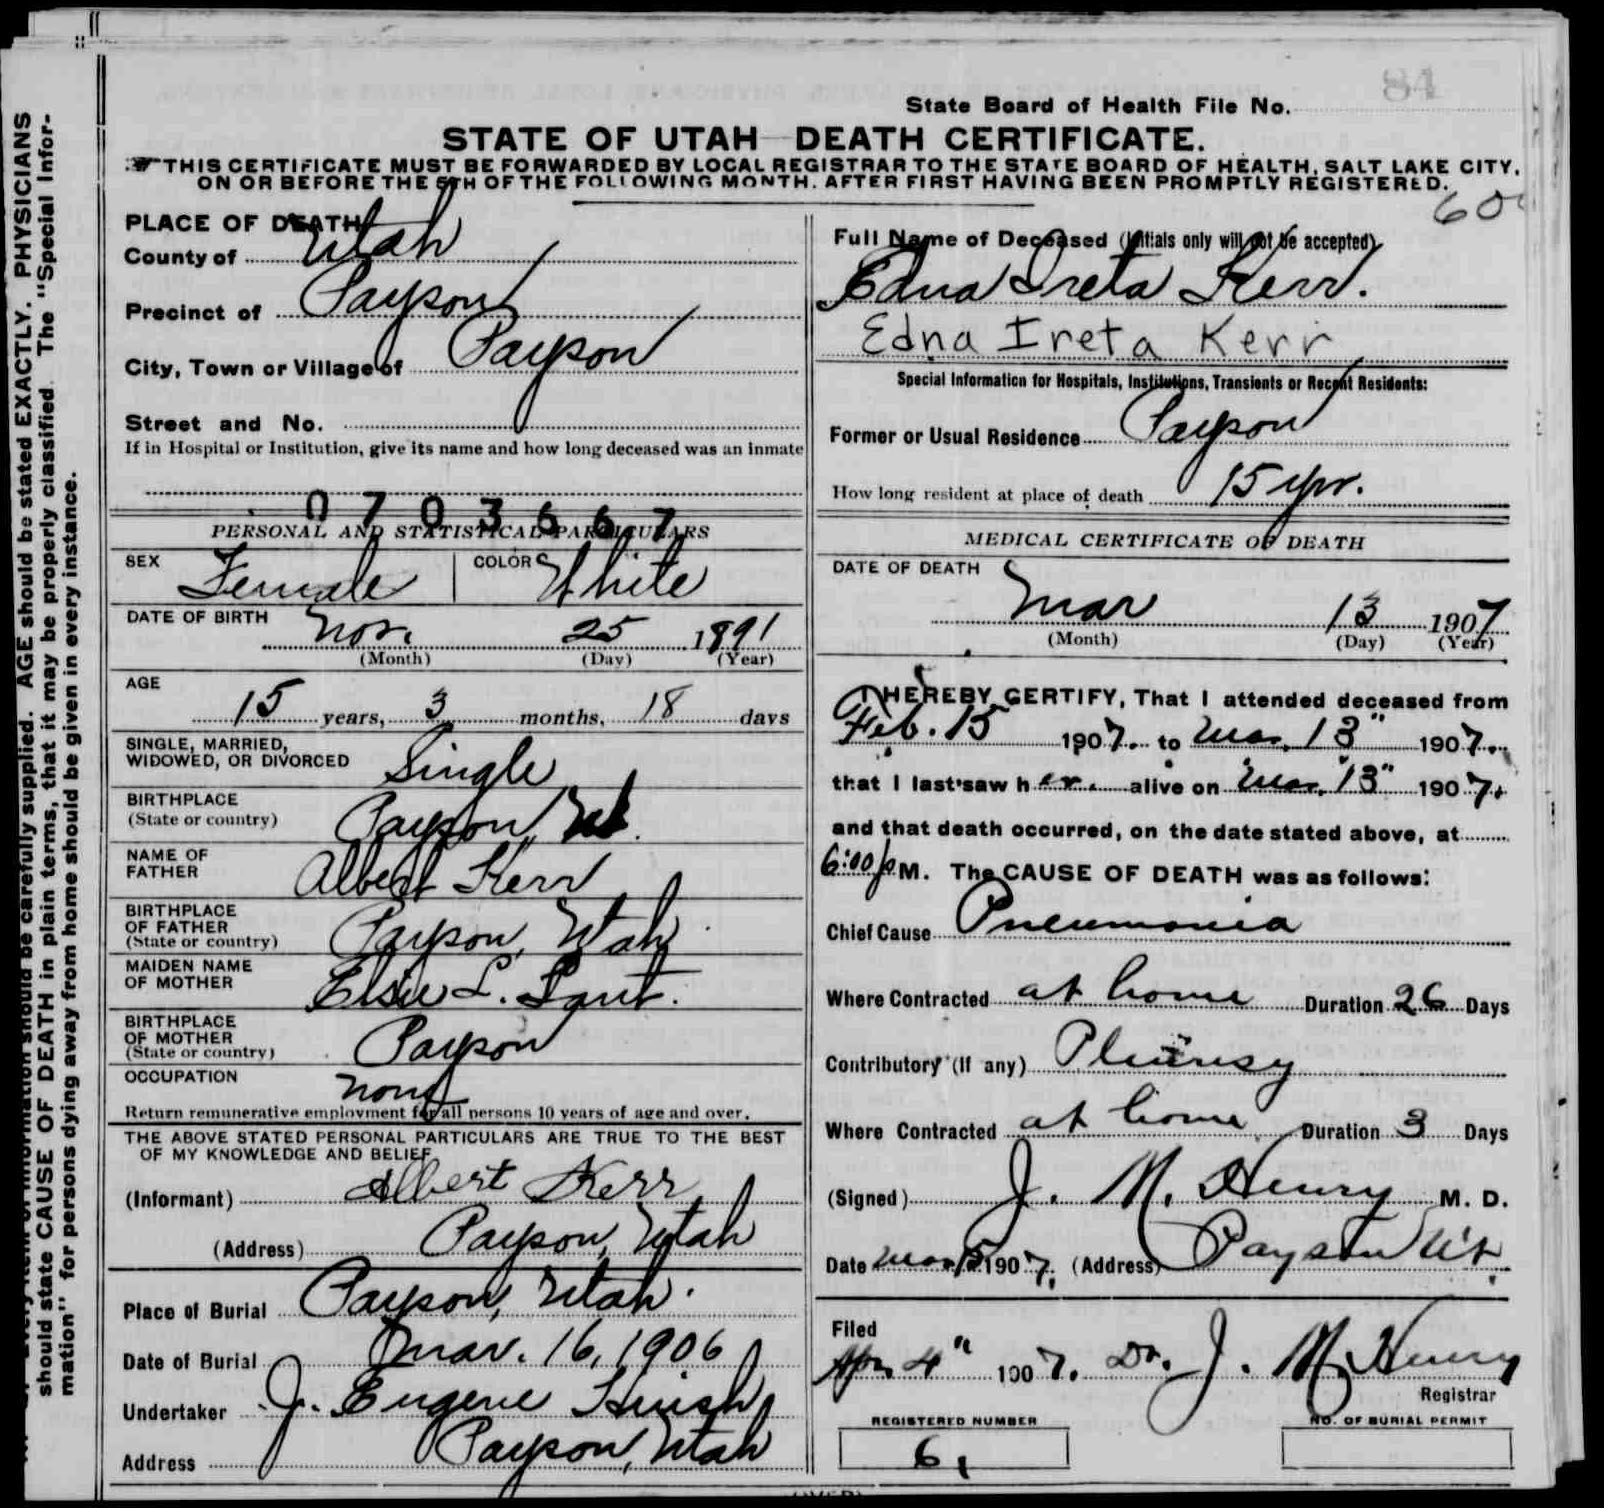 84
State Board of Health File No.
STATE OF UTAH—DEATH CERTIFICATE.
THIS CERTIFICATE MUST BE FORWARDED BY LOCAL REGISTRAR TO THE STATE BOARD OF HEALTH, SALT LAKE CITY,
ON OR BEFORE THE 5TH OF THE FOLLOWING MONTH. AFTER FIRST HAVING BEEN PROMPTLY REGISTERED.
should be carefully supplied. AGE should be stated EXACTLY. PHYSICIANS
should state CAUSE OF DEATH in plain terms, that it may be properly classified. The "Special Infor-
mation" for persons dying away from home should be given in every instance.
PLACE OF DEATH
County of Utah
Precinct of Payson
City, Town or Village of Payson
Street and No.
If in Hospital or Institution, give its name and how long deceased was an inmate
0703667
PERSONAL AND STATISTICAL PARTICULARS
SEX Female COLOR White
DATE OF BIRTH Nov. 25 1891
(Month) (Day) (Year)
AGE
15 years, 3 months, 18 days
SINGLE, MARRIED,
WIDOWED, OR DIVORCED Single
BIRTHPLACE
(State or country) Payson, Ut.
NAME OF
FATHER Albert Kerr
BIRTHPLACE
OF FATHER
(State or country) Payson, Utah
MAIDEN NAME
OF MOTHER Elsie L. Tanner
BIRTHPLACE
OF MOTHER
(State or country) Payson
OCCUPATION none
Return remunerative employment for all persons 10 years of age and over.
THE ABOVE STATED PERSONAL PARTICULARS ARE TRUE TO THE BEST
OF MY KNOWLEDGE AND BELIEF
(Informant) Albert Kerr
(Address) Payson, Utah
Place of Burial Payson, Utah.
Date of Burial Mar. 16, 1906
Undertaker J. Eugene Huish
Address Payson, Utah
Full Name of Deceased (Initials only will not be accepted)
Edna Ireta Kerr.
Edna Ireta Kerr
Special Information for Hospitals, Institutions, Transients or Recent Residents:
Former or Usual Residence Payson
How long resident at place of death 15 yr.
MEDICAL CERTIFICATE OF DEATH
DATE OF DEATH
Mar 13 1907
(Month) (Day) (Year)
I HEREBY CERTIFY, That I attended deceased from
Feb. 15 1907. to Mar. 13" 1907.
that I last saw her. alive on Mar. 13" 1907.
and that death occurred, on the date stated above, at
6:00 P M. The CAUSE OF DEATH was as follows:
Chief Cause Pneumonia
Where Contracted at home Duration 26 Days
Contributory (If any) Pleurisy
Where Contracted at home Duration 3 Days
(Signed) J. M. Henry M. D.
Date Mar. 15 1907. (Address) Payson Ut.
Filed
Apr. 4" 1907. Dr. J. M. Henry
Registrar
REGISTERED NUMBER NO. OF BURIAL PERMIT
6